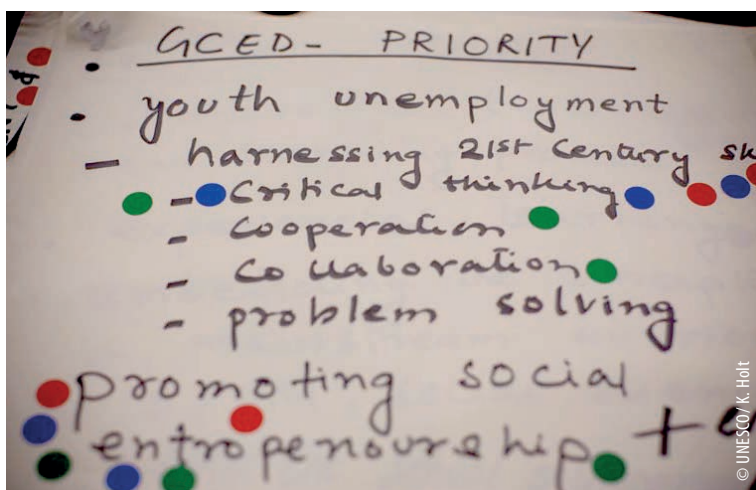 GCED - PRIORITY
• youth unemployment
- harnessing 21st Century sk
- Critical thinking
- Cooperation
- Collaboration
- problem solving
promoting social
entropenourship +
© UNESCO/ K. Holt